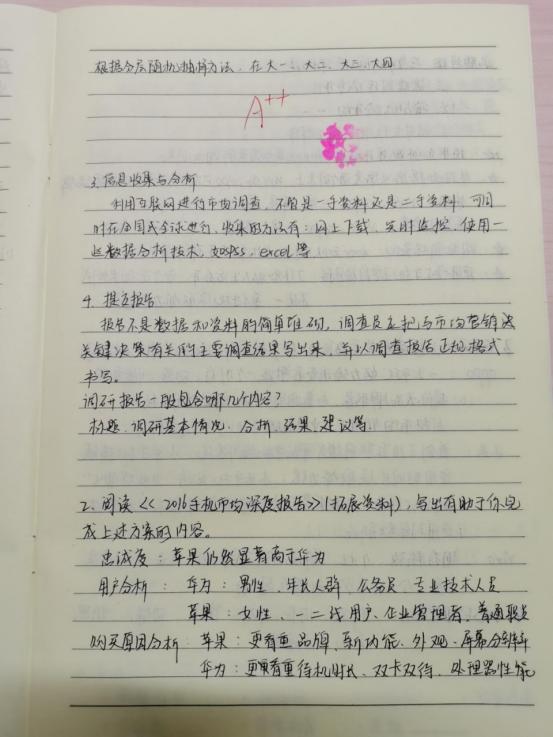 根据分层随机抽样方法,在大一、大二、大三、大四
A++
3.信息收集与分析
利用互联网进行市场调查,不管是一手资料还是二手资料,可同
时在全国或全球进行,收集的方法有:网上下载,实时监控,使用一
些数据分析技术,如spss,excel等
4.提交报告
报告不是数据和资料的简单堆砌,调查员应把与市场营销决
关键决策有关的主要调查结果写出来,并以调查报告正规格式
书写。
调研报告一般包含哪几个内容?
标题、调研基本情况、分析、结果、建议等
2.阅读<<2016手机市场深度报告>>(拓展资料),写出有助于你完
成上述方案的内容。
忠诚度:苹果仍然显著高于华为
用户分析:华为:男性、年长人群、公务员、专业技术人员
苹果:女性、一二线用户、企业管理者、普通职员
购买原因分析:苹果:更看重品牌、新功能、外观、屏幕分辨率
华为:更看重待机时长、双卡双待、处理器性能